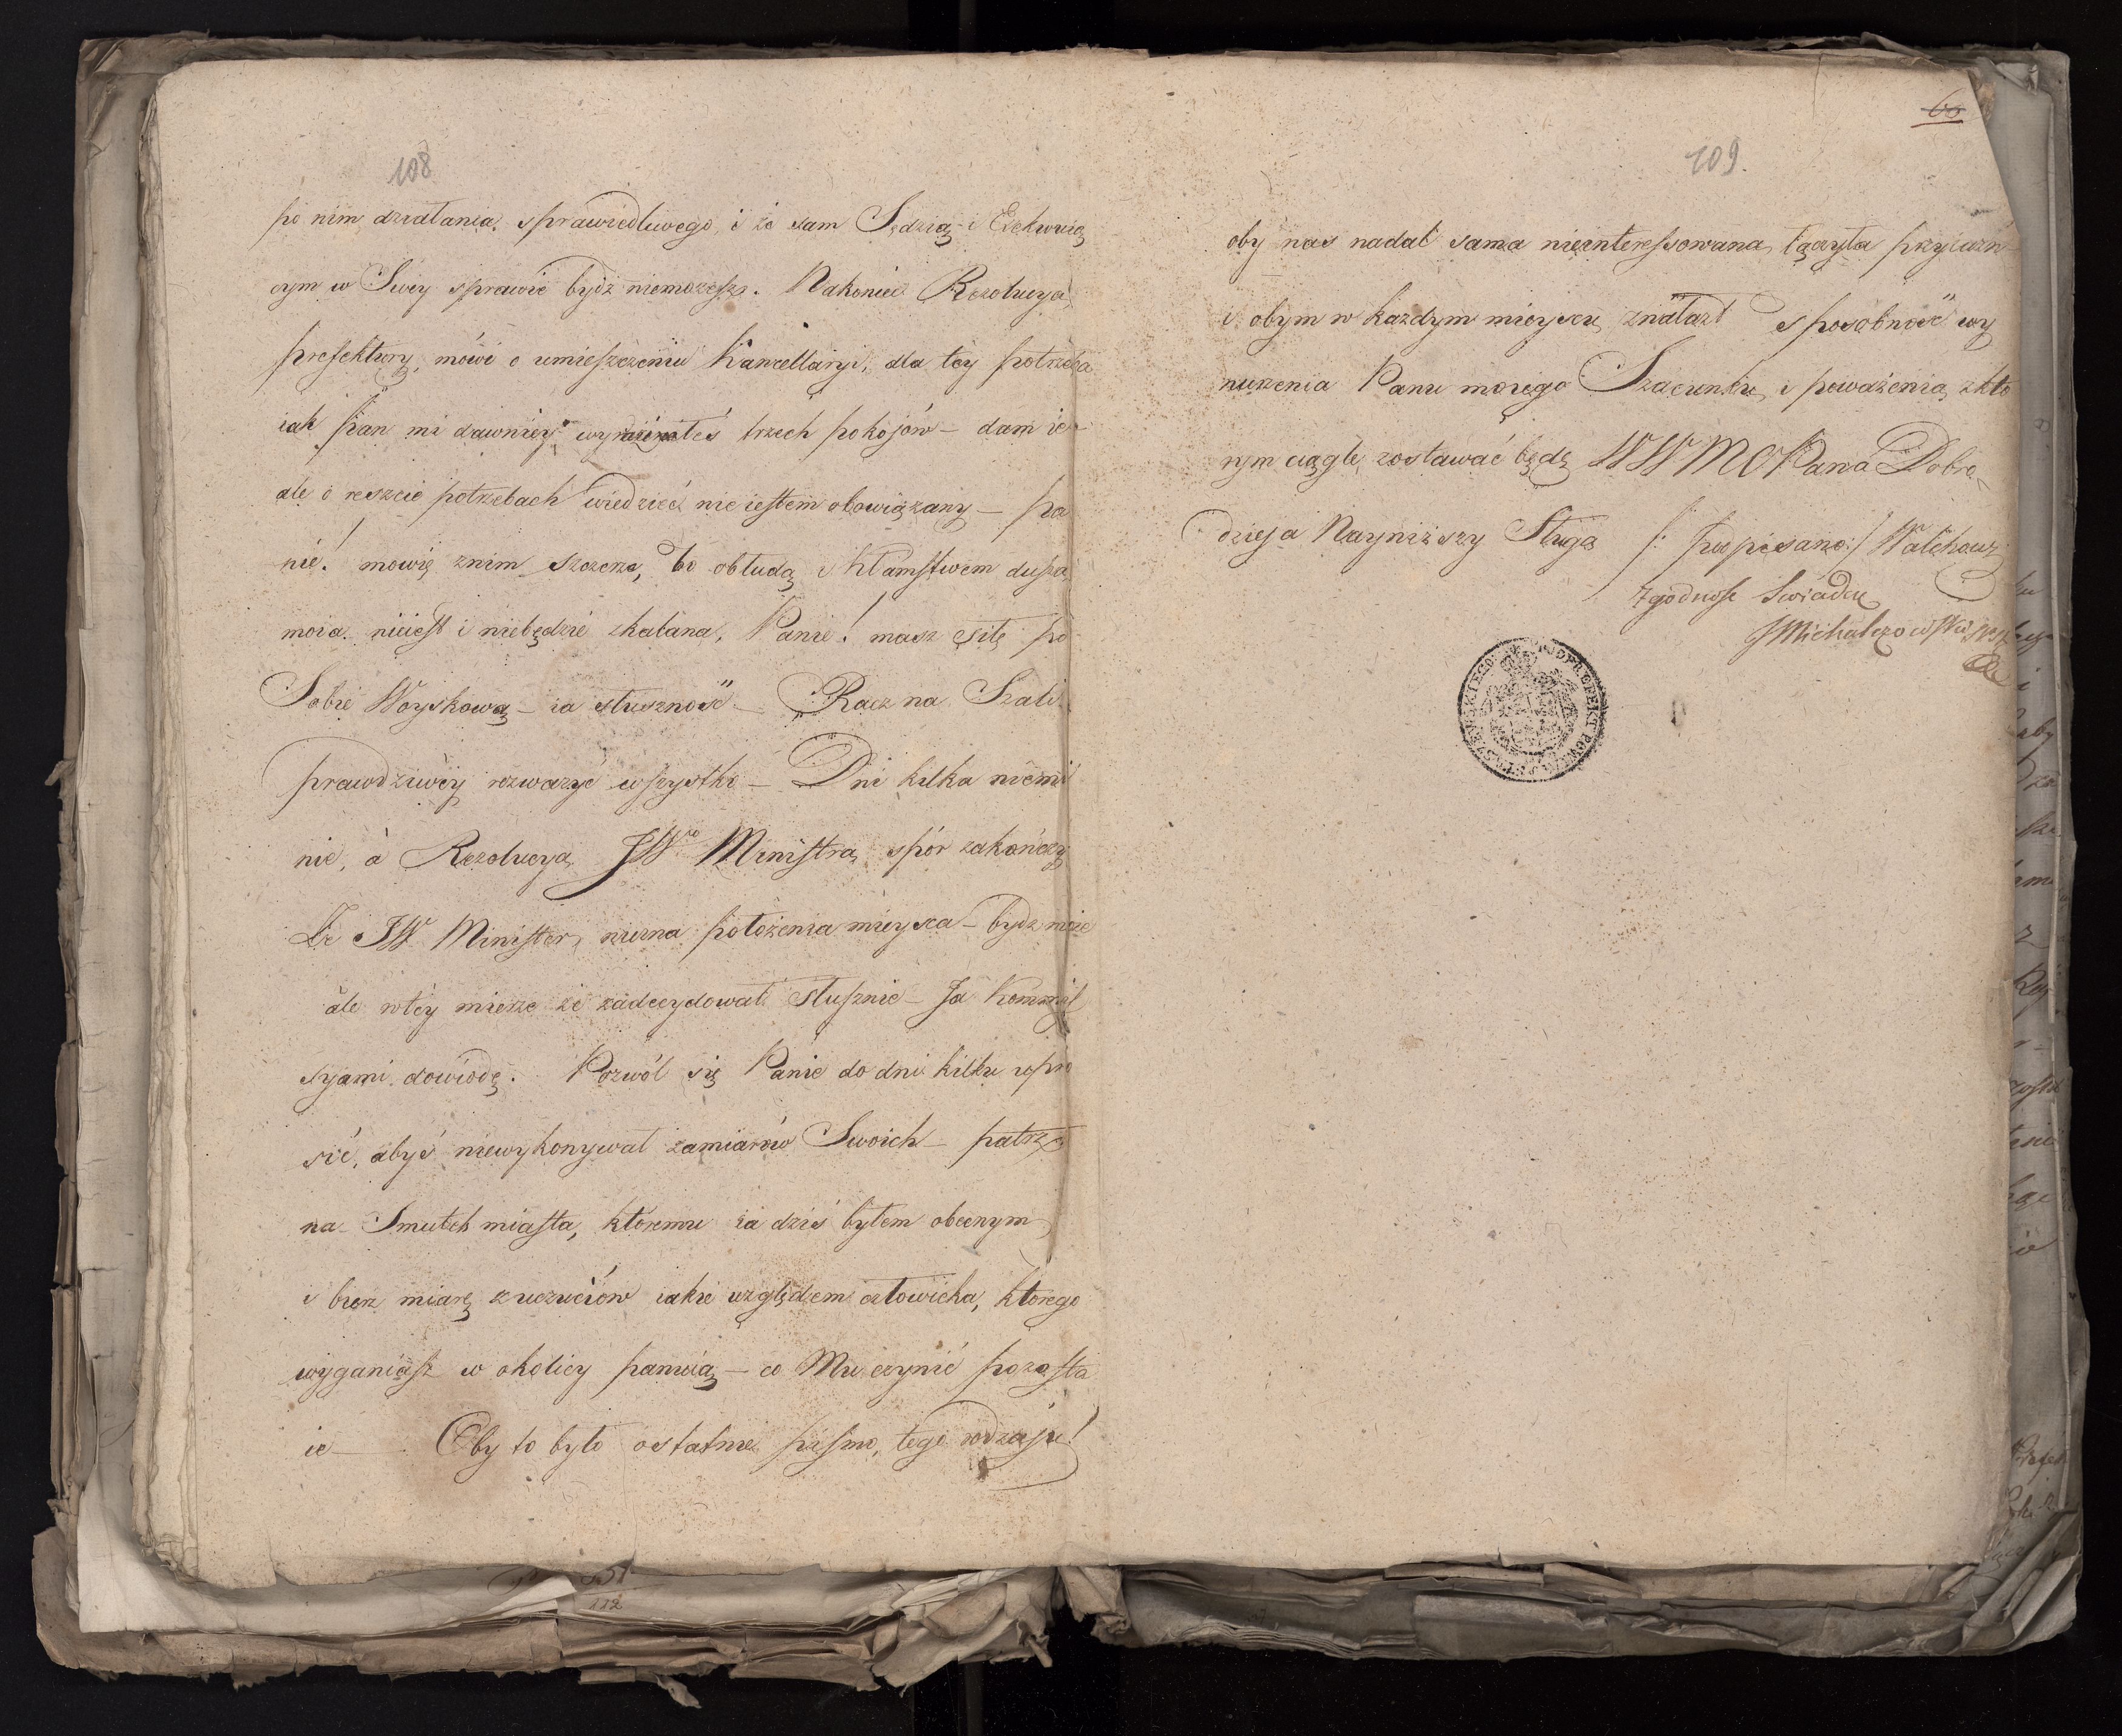 108
po nim działania sprawiedliwego, i że sam Sędzią i Exekwuią
cym w Swey sprawie bydź niemożesz. Nakoniec Rezolucya
prefektury, mówi o umieszczeniu Kancellaryi, dla tey potrzeba
iak Pan mi dawniey trzech pokojów – dam ie –
ale o reszcie potrzebach wiedzieć nie iestem obowiązany – pa
nie! mowię znim szczerze, bo obłudą i kłamstwem dusza
moia nieiest i niebędzie skalana, Panie! masz siłę po
Sobie Woyskową – ia słuszność – Racz na Szali
prawdziwey rozważyć wszystko – Dni kilka niemi
nie, a Rezolucya JWo Ministra spór zakończy
Że JW Minister niezna położenia mieysca – bydz może
ale wtey mierze że zadecydował słusznie – Ja kommis
syami dowiodę. Pozwól się Panie do dni kilku upro
sić, abyś niewykonywał zamiarów Swoich – patrz
na Smutek miasta, któremu ia dziś byłem obecnym
i bierz miarę z uczuciów iakie względem człowieka, którego
wyganiasz w okolicy panuią – co Mu czynić pozosta
ie – Oby to było ostatnie pismo, tego rodzaju!
60
109.
oby nas nadal sama nieinteressowana łączyła przyiaźń
i obym w każdym mieyscu znalazł sposobność wy
nurzenia Panu moiego Szacunku i poważenia zktó
rym ciągle zostawać będę WWMO Pana Dobro
dzieja Nayniższy Sługa /: podpisano :/ Walichowsz
Zgodnosc Swiadczę
JMichalczowski
PODPREFEKT POW.